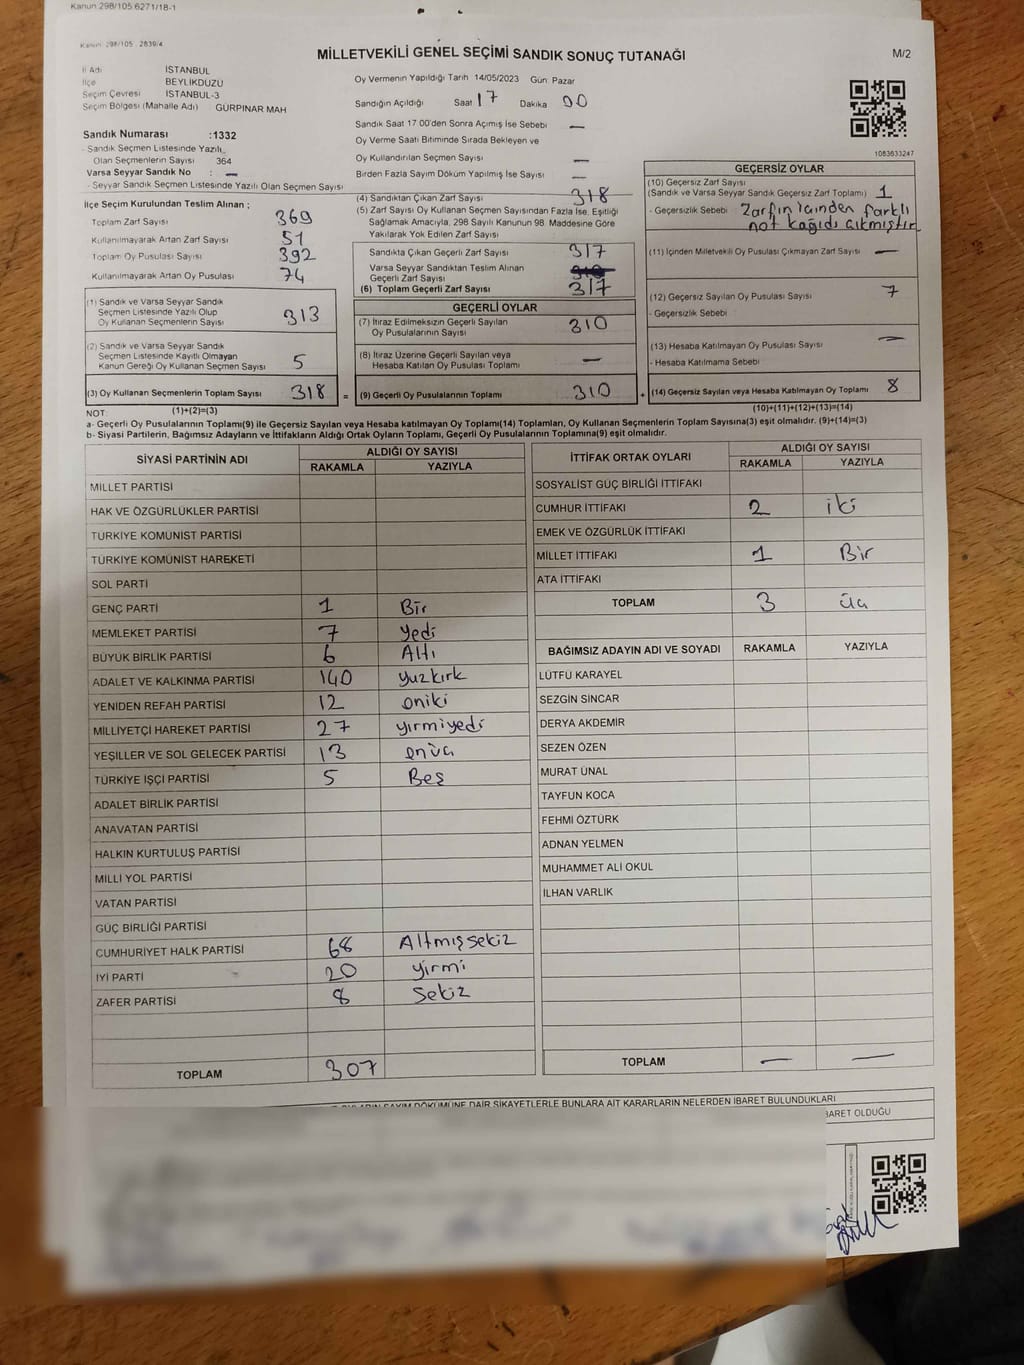 Kanun 298/105 6271/18-1
Kanun 298/105 . 2839/4
MİLLETVEKİLİ GENEL SEÇİMİ SANDIK SONUÇ TUTANAĞI
M/2
İl Adı İSTANBUL
İlçe BEYLİKDÜZÜ
Seçim Çevresi İSTANBUL-3
Seçim Bölgesi (Mahalle Adı) GÜRPINAR MAH
Sandık Numarası :1332
- Sandık Seçmen Listesinde Yazılı
Olan Seçmenlerin Sayısı 364
Varsa Seyyar Sandık No : —
- Seyyar Sandık Seçmen Listesinde Yazılı Olan Seçmen Sayısı
Oy Vermenin Yapıldığı Tarih 14/05/2023 Gün: Pazar
Sandığın Açıldığı Saat 17 Dakika 00
Sandık Saat 17 00'den Sonra Açımış İse Sebebi —
Oy Verme Saati Bitiminde Sırada Bekleyen ve
Oy Kullandırılan Seçmen Sayısı —
Birden Fazla Sayım Döküm Yapılmış İse Sayısı —
1083633247
İlçe Seçim Kurulundan Teslim Alınan ;
Toplam Zarf Sayısı 369
Kullanılmayarak Artan Zarf Sayısı 51
Toplam Oy Pusulası Sayısı 392
Kullanılmayarak Artan Oy Pusulası 74
(1) Sandık ve Varsa Seyyar Sandık
Seçmen Listesinde Yazılı Olup
Oy Kullanan Seçmenlerin Sayısı 313
(2) Sandık ve Varsa Seyyar Sandık
Seçmen Listesinde Kayıtlı Olmayan
Kanun Gereği Oy Kullanan Seçmen Sayısı 5
(3) Oy Kullanan Seçmenlerin Toplam Sayısı 318 =
(1)+(2)=(3)
(4) Sandıktan Çıkan Zarf Sayısı 318
(5) Zarf Sayısı Oy Kullanan Seçmen Sayısından Fazla İse, Eşitliği
Sağlamak Amacıyla, 298 Sayılı Kanunun 98. Maddesine Göre
Yakılarak Yok Edilen Zarf Sayısı
Sandıkta Çıkan Geçerli Zarf Sayısı 317
Varsa Seyyar Sandıktan Teslim Alınan
Geçerli Zarf Sayısı
(6) Toplam Geçerli Zarf Sayısı 317
GEÇERLİ OYLAR
(7) İtiraz Edilmeksizin Geçerli Sayılan
Oy Pusulalarının Sayısı 310
(8) İtiraz Üzerine Geçerli Sayılan veya
Hesaba Katılan Oy Pusulası Toplamı —
(9) Geçerli Oy Pusulalarının Toplamı 310 +
GEÇERSİZ OYLAR
(10) Geçersiz Zarf Sayısı
(Sandık ve Varsa Seyyar Sandık Geçersiz Zarf Toplamı) 1
- Geçersizlik Sebebi Zarfın içinden farklı
not kağıdı çıkmıştır
(11) İçinden Milletvekili Oy Pusulası Çıkmayan Zarf Sayısı —
(12) Geçersiz Sayılan Oy Pusulası Sayısı 7
- Geçersizlik Sebebi
(13) Hesaba Katılmayan Oy Pusulası Sayısı —
- Hesaba Katılmama Sebebi
(14) Geçersiz Sayılan veya Hesaba Katılmayan Oy Toplamı 8
(10)+(11)+(12)+(13)=(14)
NOT:
a- Geçerli Oy Pusulalarının Toplamı(9) ile Geçersiz Sayılan veya Hesaba katılmayan Oy Toplamı(14) Toplamları, Oy Kullanan Seçmenlerin Toplam Sayısına(3) eşit olmalıdır. (9)+(14)=(3)
b- Siyasi Partilerin, Bağımsız Adayların ve İttifakların Aldığı Ortak Oyların Toplamı, Geçerli Oy Pusulalarının Toplamına(9) eşit olmalıdır.
SİYASİ PARTİNİN ADI ALDIĞI OY SAYISI
RAKAMLA YAZIYLA
MİLLET PARTİSİ
HAK VE ÖZGÜRLÜKLER PARTİSİ
TÜRKİYE KOMÜNİST PARTİSİ
TÜRKİYE KOMÜNİST HAREKETİ
SOL PARTİ
GENÇ PARTİ 1 Bir
MEMLEKET PARTİSİ 7 yedi
BÜYÜK BİRLİK PARTİSİ 6 Altı
ADALET VE KALKINMA PARTİSİ 140 yüzkırk
YENİDEN REFAH PARTİSİ 12 oniki
MİLLİYETÇİ HAREKET PARTİSİ 27 yirmiyedi
YEŞİLLER VE SOL GELECEK PARTİSİ 13 onüç
TÜRKİYE İŞÇİ PARTİSİ 5 Beş
ADALET BİRLİK PARTİSİ
ANAVATAN PARTİSİ
HALKIN KURTULUŞ PARTİSİ
MİLLİ YOL PARTİSİ
VATAN PARTİSİ
GÜÇ BİRLİĞİ PARTİSİ
CUMHURİYET HALK PARTİSİ 68 Altmışsekiz
İYİ PARTİ 20 yirmi
ZAFER PARTİSİ 8 Sekiz
TOPLAM 307
İTTİFAK ORTAK OYLARI ALDIĞI OY SAYISI
RAKAMLA YAZIYLA
SOSYALİST GÜÇ BİRLİĞİ İTTİFAKI
CUMHUR İTTİFAKI 2 iki
EMEK VE ÖZGÜRLÜK İTTİFAKI
MİLLET İTTİFAKI 1 Bir
ATA İTTİFAKI
TOPLAM 3 üç
BAĞIMSIZ ADAYIN ADI VE SOYADI RAKAMLA YAZIYLA
LÜTFÜ KARAYEL
SEZGİN SİNCAR
DERYA AKDEMİR
SEZEN ÖZEN
MURAT ÜNAL
TAYFUN KOCA
FEHMİ ÖZTÜRK
ADNAN YELMEN
MUHAMMET ALİ OKUL
İLHAN VARLIK
TOPLAM — —
SAYIM DÖKÜMÜNE DAİR ŞİKAYETLERLE BUNLARA AİT KARARLARIN NELERDEN İBARET BULUNDUKLARI
İBARET OLDUĞU